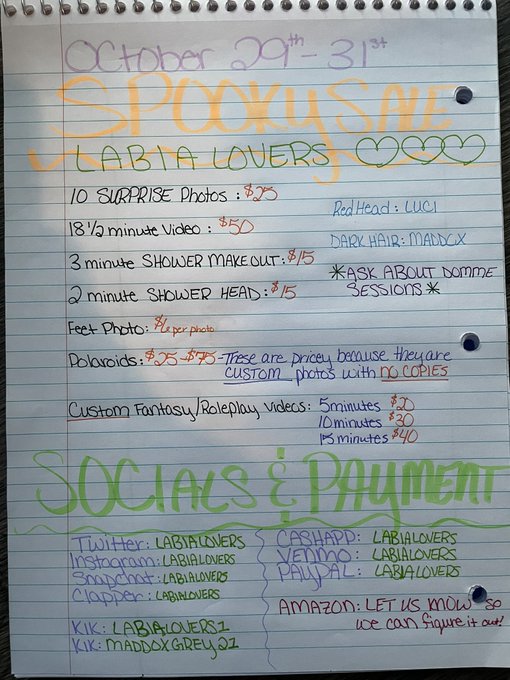 October 29th - 31st
SPOOKY SALE
LABIA LOVERS
10 SURPRISE Photos : $25
18 1/2 minute Video : $50
3 minute SHOWER MAKE OUT : $15
2 minute SHOWER HEAD : $15
Feet Photo: $6 per photo
Red Head : LUCI
DARK HAIR : MADDOX
*ASK ABOUT DOMME
SESSIONS*
Polaroids: $25-$75 - These are pricey because they are
CUSTOM photos with NO COPIES
Custom Fantasy/Roleplay Videos: 5 minutes $20
10 minutes $30
15 minutes $40
SOCIALS & PAYMENT
Twitter: LABIALOVERS
Instagram: LABIALOVERS
Snapchat: LABIALOVERS
Clapper: LABIALOVERS
KIK: LABIALOVERS1
KIK: MADDOXGREY21
CASHAPP: LABIALOVERS
VENMO: LABIALOVERS
PAYPAL: LABIALOVERS
AMAZON: LET US KNOW so
we can figure it out!